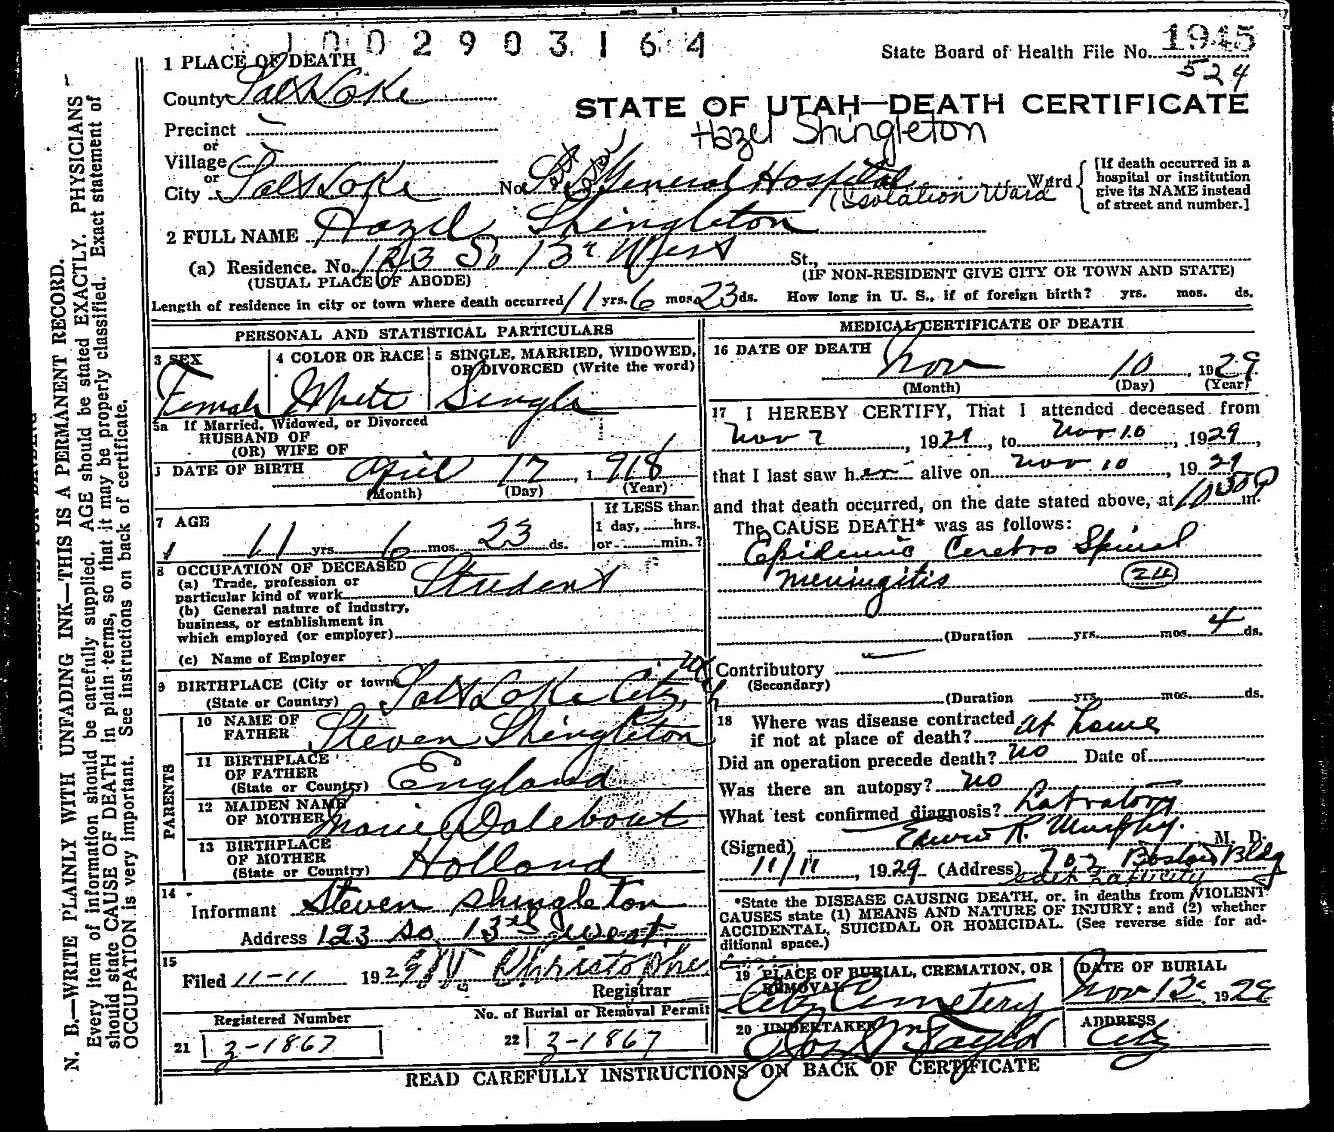 1002903164
State Board of Health File No. 1945
524
STATE OF UTAH—DEATH CERTIFICATE
Hazel Shingleton
1 PLACE OF DEATH
County Salt Lake
Precinct
or
Village
or
City Salt Lake No. General Hospital Ward
(Isolation Ward
[If death occurred in a
hospital or institution
give its NAME instead
of street and number.]
2 FULL NAME Hazel Shingleton
(a) Residence. No. 123 So 13th West St.,
(USUAL PLACE OF ABODE) (IF NON-RESIDENT GIVE CITY OR TOWN AND STATE)
Length of residence in city or town where death occurred 11 yrs. 6 mos. 23 ds. How long in U. S., if of foreign birth? yrs. mos. ds.
PERSONAL AND STATISTICAL PARTICULARS
3 SEX 4 COLOR OR RACE 5 SINGLE, MARRIED, WIDOWED,
OR DIVORCED (Write the word)
Female White Single
5a If Married, Widowed, or Divorced
HUSBAND OF
(OR) WIFE OF
DATE OF BIRTH April 17, 1918
(Month) (Day) (Year)
7 AGE If LESS than
1 day, hrs.
11 yrs. 6 mos. 23 ds. or min.?
8 OCCUPATION OF DECEASED
(a) Trade, profession or
particular kind of work Student
(b) General nature of industry,
business, or establishment in
which employed (or employer)
(c) Name of Employer
9 BIRTHPLACE (City or town) Salt Lake City,
(State or Country)
PARENTS
10 NAME OF
FATHER Steven Shingleton
11 BIRTHPLACE
OF FATHER England
(State or Country)
12 MAIDEN NAME
OF MOTHER Marie Dalebout
13 BIRTHPLACE
OF MOTHER Holland
(State or Country)
14
Informant Steven Shingleton
Address 123 So. 13th west.
15
Filed 11-11 1929
Registrar
Registered Number No. of Burial or Removal Permit
21 3-1867 22 3-1867
MEDICAL CERTIFICATE OF DEATH
16 DATE OF DEATH Nov 10, 1929
(Month) (Day) (Year)
17 I HEREBY CERTIFY, That I attended deceased from
Nov 7, 1929, to Nov 10, 1929,
that I last saw her alive on Nov 10, 1929
and that death occurred, on the date stated above, at 1030P m.
The CAUSE DEATH* was as follows:
Epidemic Cerebro Spinal
meningitis 24
(Duration yrs. mos. 4 ds.
Contributory
(Secondary)
(Duration yrs. mos. ds.
18 Where was disease contracted
if not at place of death? at home
Did an operation precede death? no Date of
Was there an autopsy? no
What test confirmed diagnosis? Labratory
(Signed) Edwin R. Murphy. M. D.
11/11, 1929 (Address) 702 Boston Bldg
*State the DISEASE CAUSING DEATH, or, in deaths from VIOLENT
CAUSES state (1) MEANS AND NATURE OF INJURY; and (2) whether
ACCIDENTAL, SUICIDAL OR HOMICIDAL. (See reverse side for ad-
ditional space.)
19 PLACE OF BURIAL, CREMATION, OR
REMOVAL
City Cemetery
DATE OF BURIAL
Nov 12, 1929
20 UNDERTAKER
Taylor
ADDRESS
City
READ CAREFULLY INSTRUCTIONS ON BACK OF CERTIFICATE
N. B.—WRITE PLAINLY WITH UNFADING INK—THIS IS A PERMANENT RECORD.
Every item of information should be carefully supplied. AGE should be stated EXACTLY. PHYSICIANS
should state CAUSE OF DEATH in plain terms, so that it may be properly classified. Exact statement of
OCCUPATION is very important. See instructions on back of certificate.